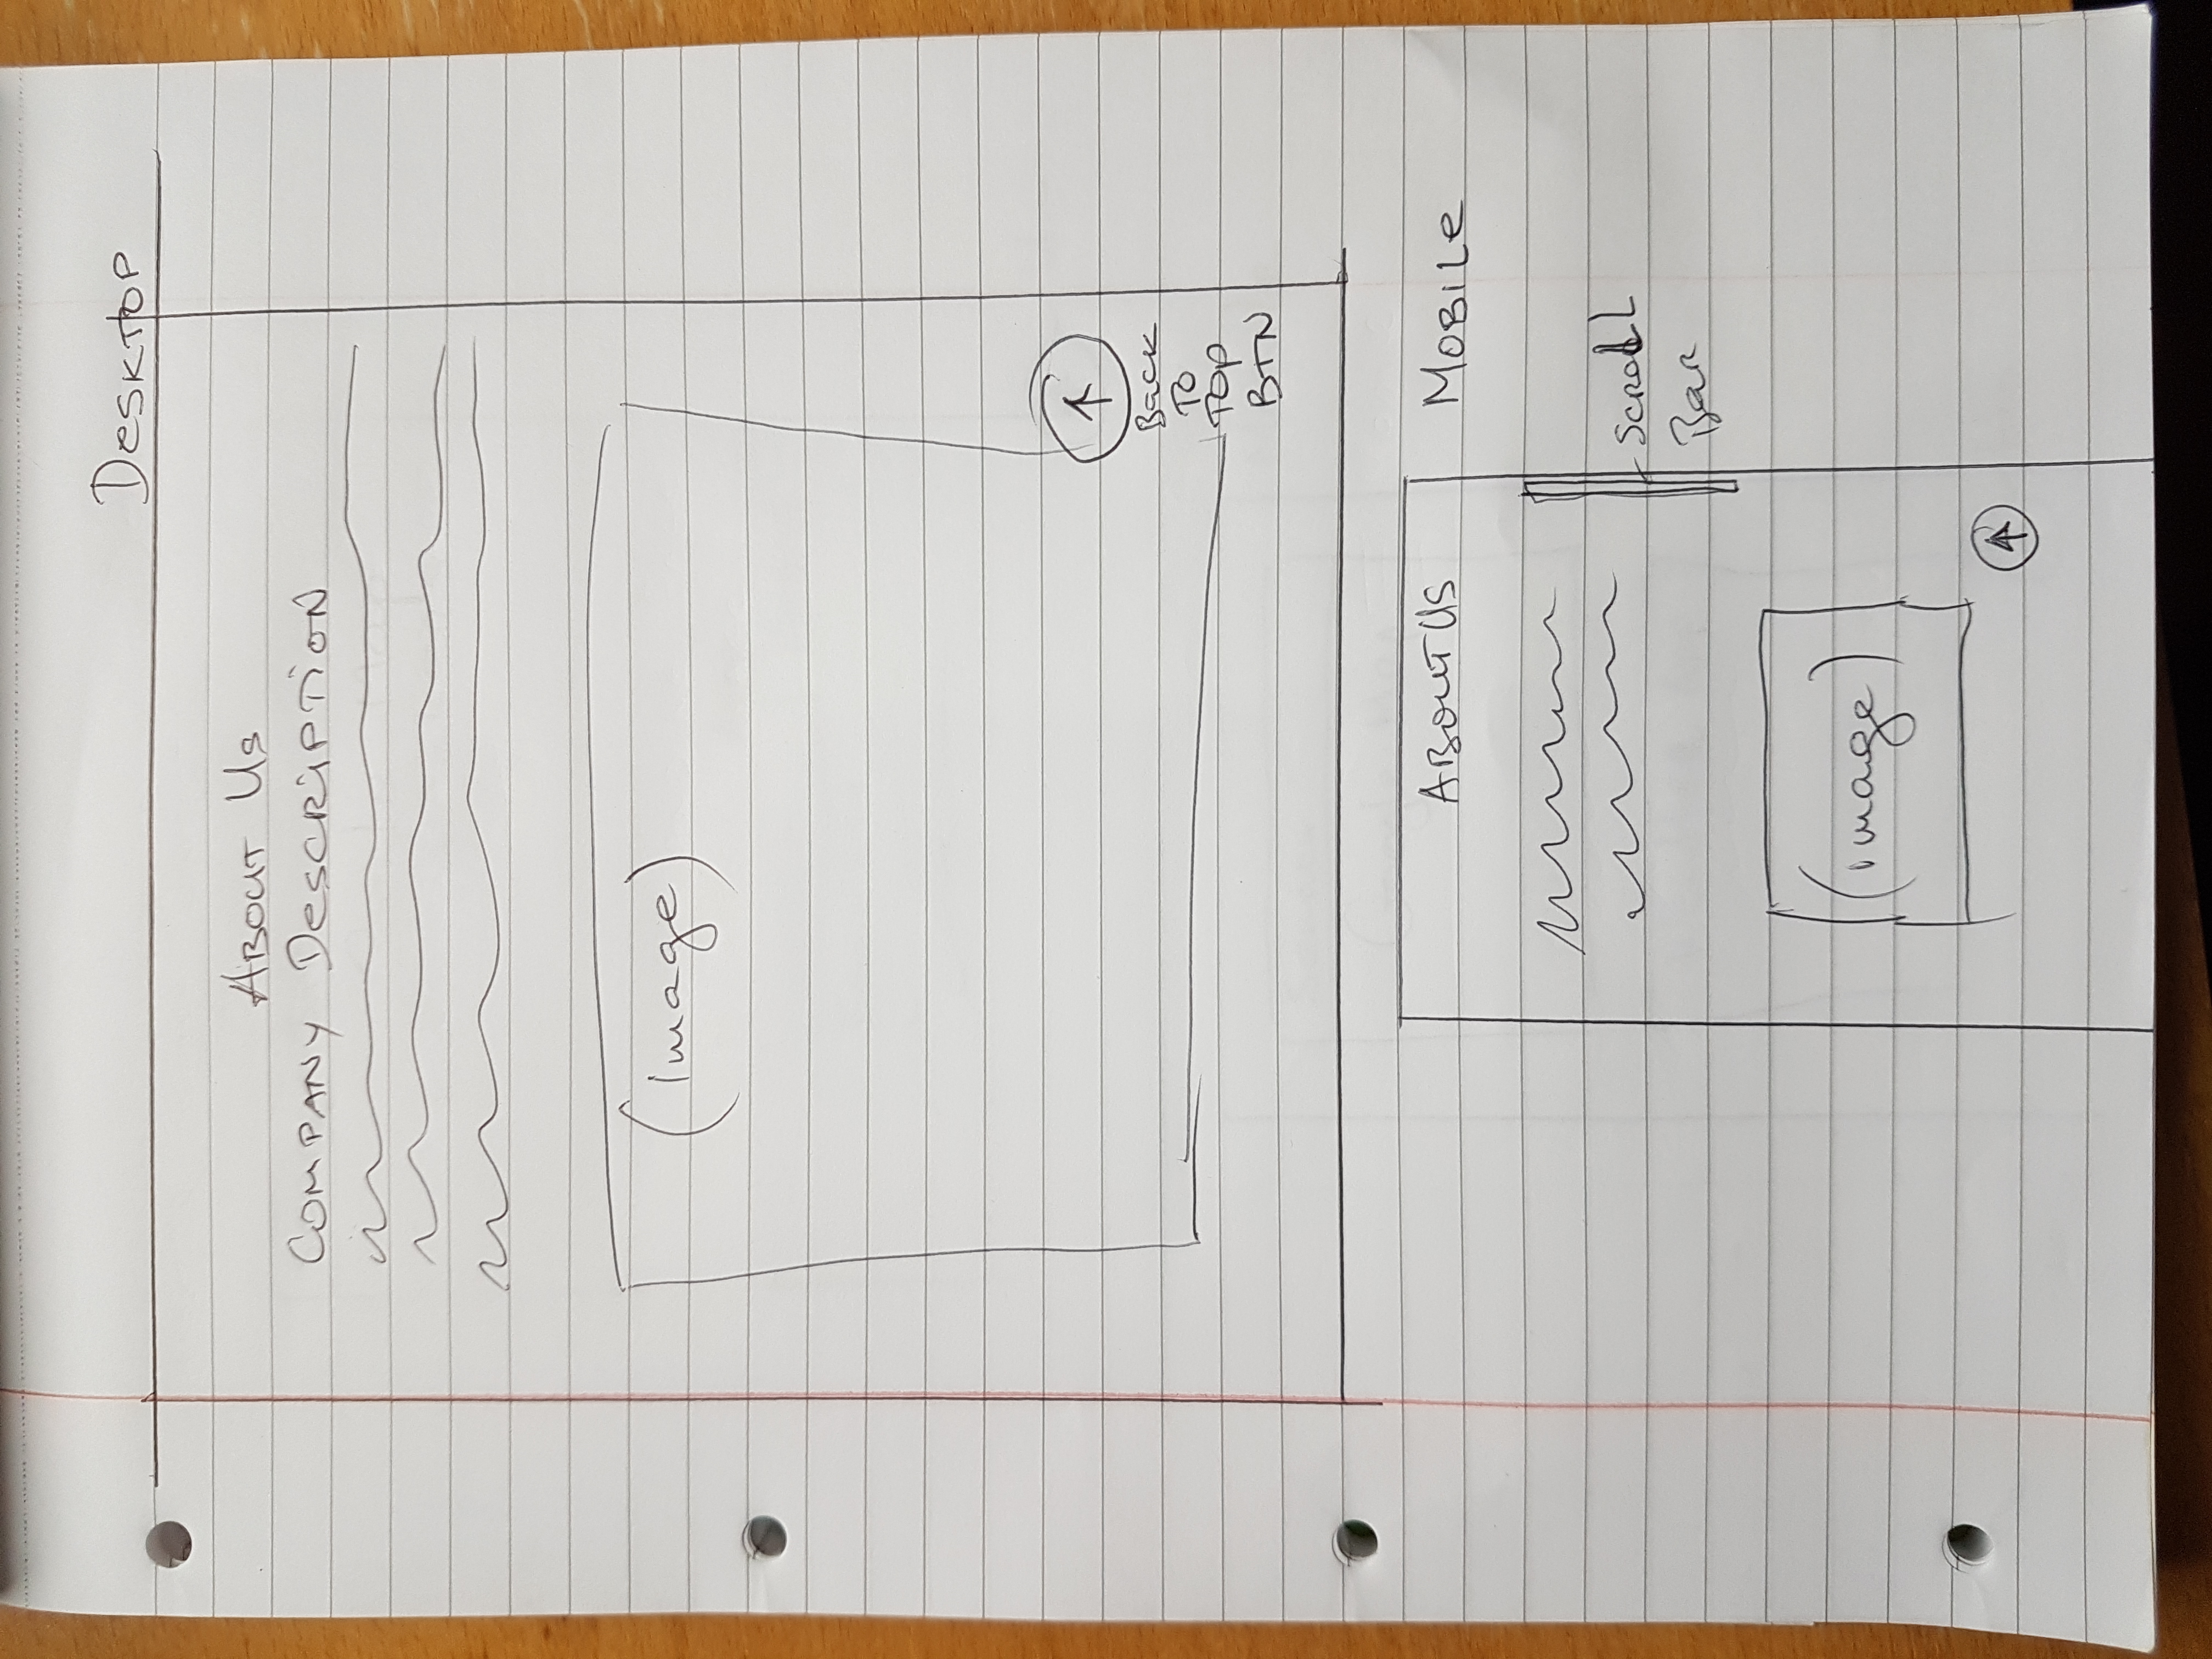 DESKTOP
ABOUT US
COMPANY DESCRIPTION
(Image)
Back
To
TOP
BTN
ABOUT US
MOBILE
SCROLL
Bar
(image)